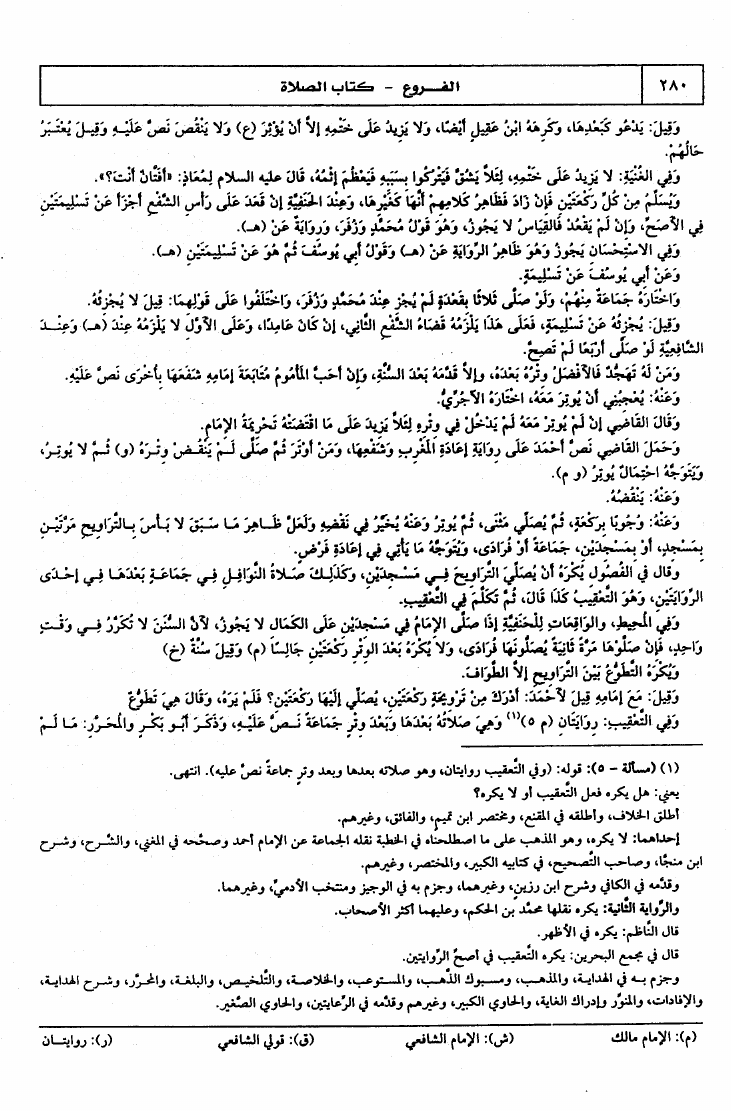 ٢٨٠
الفـــروع - كتاب الصلاة
وَقِيلَ: يَدْعُو كَبَعْدِهَا، وَكَرِهَهُ ابْنُ عَقِيلٍ أَيْضًا، وَلَا يَزِيدُ عَلَى خَتْمِهِ إلاَّ أَنْ يُؤْثِرَ (ع) وَلَا يَنْقُصَ نَصَّ عَلَيْهِ وَقِيلَ يُعْتَبَرُ
حَالُهُمْ.
وَفِي الغُنْيَةِ: لَا يَزِيدُ عَلَى خَتْمِهِ، لِئَلاَّ يَشُقَّ فَيَتْرُكُوا بِسَبَبِهِ فَيَعْظُمَ إثْمُهُ، قَالَ عليه السلام لِمُعَاذٍ: «أفَتَّانٌ أَنْتَ؟».
وَيُسَلِّمُ مِنْ كُلِّ رَكْعَتَيْنِ فَإِنْ زَادَ فَظَاهِرُ كَلَامِهِمْ أَنَّهَا كَغَيْرِهَا، وَعِنْدَ الحَنَفِيَّةِ إنْ قَعَدَ عَلَى رَأْسِ الشَّفْعِ أَجْزَأَ عَنْ تَسْلِيمَتَيْنِ
فِي الأَصَحِّ، وَإِنْ لَمْ يَقْعُدْ فَالقِيَاسُ لَا يَجُوزُ، وَهُوَ قَوْلُ مُحَمَّدٍ وَزُفَرَ، وَرِوَايَةٌ عَنْ (هـ).
وَفِي الاسْتِحْسَانِ يَجُوزُ وَهُوَ ظَاهِرُ الرِّوَايَةِ عَنْ (هـ) وَقَوْلُ أَبِي يُوسُفَ ثُمَّ هُوَ عَنْ تَسْلِيمَتَيْنِ (هـ).
وَعَنْ أَبِي يُوسُفَ عَنْ تَسْلِيمَةٍ.
وَاخْتَارَهُ جَمَاعَةٌ مِنْهُمْ، وَلَوْ صَلَّى ثَلَاثًا بِقَعْدَةٍ لَمْ يُجْزِ عِنْدَ مُحَمَّدٍ وَزُفَرَ، وَاخْتَلَفُوا عَلَى قَوْلِهِمَا: قِيلَ لَا يُجْزِئُهُ.
وَقِيلَ: يُجْزِئُهُ عَنْ تَسْلِيمَةٍ، فَعَلَى هَذَا يَلْزَمُهُ قَضَاءُ الشَّفْعِ الثَّانِي، إِنْ كَانَ عَامِدًا، وَعَلَى الأَوَّلِ لَا يَلْزَمُهُ عِنْدَ (هـ) وَعِنْدَ
الشَّافِعِيَّةِ لَوْ صَلَّى أَرْبَعًا لَمْ تَصِحَّ.
وَمَنْ لَهُ تَهَجُّدٌ فَالأَفْضَلُ وِتْرُهُ بَعْدَهُ، وَإِلاَّ قَدَّمَهُ بَعْدَ السُّنَّةِ، وَإِنْ أَحَبَّ المَأْمُومُ مُتَابَعَةَ إِمَامِهِ شَفَعَهَا بِأُخْرَى نَصَّ عَلَيْهِ.
وَعَنْهُ: يُعْجِبُنِي أَنْ يُوتِرَ مَعَهُ، اخْتَارَهُ الآجُرِّيُّ.
وَقَالَ القَاضِي إِنْ لَمْ يُوتِرْ مَعَهُ لَمْ يَدْخُلْ فِي وِتْرِهِ لِئَلاَّ يَزِيدَ عَلَى مَا اقْتَضَتْهُ تَحْرِيمَةُ الإِمَامِ.
وَحَمَلَ القَاضِي نَصَّ أَحْمَدَ عَلَى رِوَايَةِ إِعَادَةِ المَغْرِبِ وَشَفْعِهَا، وَمَنْ أَوْتَرَ ثُمَّ صَلَّى لَمْ يَنْقُضْ وِتْرَهُ (و) ثُمَّ لَا يُوتِرُ،
وَيَتَوَجَّهُ احْتِمَالٌ يُوتِرُ (و م).
وَعَنْهُ: يَنْقُضُهُ.
وَعَنْهُ: وُجُوبًا بِرَكْعَةٍ، ثُمَّ يُصَلِّي مَثْنَى، ثُمَّ يُوتِرُ وَعَنْهُ يُخَيَّرُ فِي نَقْضِهِ وَلَعَلَّ ظَاهِرَ مَا سَبَقَ لَا بَأْسَ بِالتَّرَاوِيحِ مَرَّتَيْنِ
بِمَسْجِدٍ، أَوْ بِمَسْجِدَيْنِ، جَمَاعَةً أَوْ فُرَادَى، وَيُتَوَجَّهُ مَا يَأْتِي فِي إِعَادَةِ فَرْضٍ.
وقال في الفُصُولِ يُكْرَهُ أَنْ يُصَلِّيَ التَّرَاوِيحَ فِي مَسْجِدَيْنِ، وَكَذَلِكَ صَلَاةُ النَّوَافِلِ فِي جَمَاعَةٍ بَعْدَهَا فِي إِحْدَى
الرِّوَايَتَيْنِ، وَهُوَ التَّعْقِيبُ كَذَا قَالَ، ثُمَّ تَكَلَّمَ فِي التَّعْقِيبِ.
وَفِي المُحِيطِ، وَالوَاقِعَاتِ لِلْحَنَفِيَّةِ إِذَا صَلَّى الإِمَامُ فِي مَسْجِدَيْنِ عَلَى الكَمَالِ لَا يَجُوزُ، لأَنَّ السُّنَنَ لَا تُكَرَّرُ فِي وَقْتٍ
وَاحِدٍ، فَإِنْ صَلَّوْهَا مَرَّةً ثَانِيَةً يُصَلُّونَهَا فُرَادَى، وَلَا يُكْرَهُ بَعْدَ الوِتْرِ رَكْعَتَيْنِ جَالِسًا (م) وَقِيلَ سُنَّةٌ (خ)
وَيُكْرَهُ التَّطَوُّعُ بَيْنَ التَّرَاوِيحِ إِلاَّ الطَّوَافَ.
وَقِيلَ: مَعَ إِمَامِهِ قِيلَ لأَحْمَدَ: أَدْرَكَ مِنْ تَرْوِيحَةٍ رَكْعَتَيْنِ، يُصَلِّي إِلَيْهَا رَكْعَتَيْنِ؟ فَلَمْ يَرَهُ، وَقَالَ هِيَ تَطَوُّعٌ
وَفِي التَّعْقِيبِ: رِوَايَتَانِ (م ٥)(١) وَهِيَ صَلَاتُهُ بَعْدَهَا وَبَعْدَ وِتْرٍ جَمَاعَةً نَصَّ عَلَيْهِ، وَذَكَرَ أَبُو بَكْرٍ وَالمُحَرَّرِ: مَا لَمْ
(١) (مسألة - ٥): قوله: (وفي التَّعقيب روايتان، وهو صلاته بعدها وبعد وترٍ جماعةً نصَّ عليه). انتهى.
يعني: هل يكره فعل التَّعقيب أو لا يكره؟
أطلق الخلاف، وأطلقه في المقنع، ومختصر ابن تميم، والفائق، وغيرهم.
إحداهما: لا يكره، وهو المذهب على ما اصطلحناه في الخطبة نقله الجماعة عن الإمام أحمد وصحَّحه في المغني، والشَّرح، وشرح
ابن منجَّا، وصاحب التَّصحيح، في كتابيه الكبير، والمختصر، وغيرهم.
وقدَّمه في الكافي وشرح ابن رزين، وغيرهما، وجزم به في الوجيز ومنتخب الأدميِّ، وغيرهما.
والرِّواية الثَّانية: يكره نقلها محمَّد بن الحكم، وعليهما أكثر الأصحاب.
قال النَّاظم: يكره في الأظهر.
قال في مجمع البحرين: يكره التَّعقيب في أصحِّ الرِّوايتين.
وجزم به في الهداية، والمذهب، ومسبوك الذَّهب، والمستوعب، والخلاصة، والتَّلخيص، والبلغة، والمحرَّر، وشرح الهداية،
والإفادات، والمنوَّر وإدراك الغاية، والحاوي الكبير، وغيرهم وقدَّمه في الرِّعايتين، والحاوي الصَّغير.
(م): الإمام مالك (ش): الإمام الشافعي (ق): قولي الشافعي (ر): روايتــان